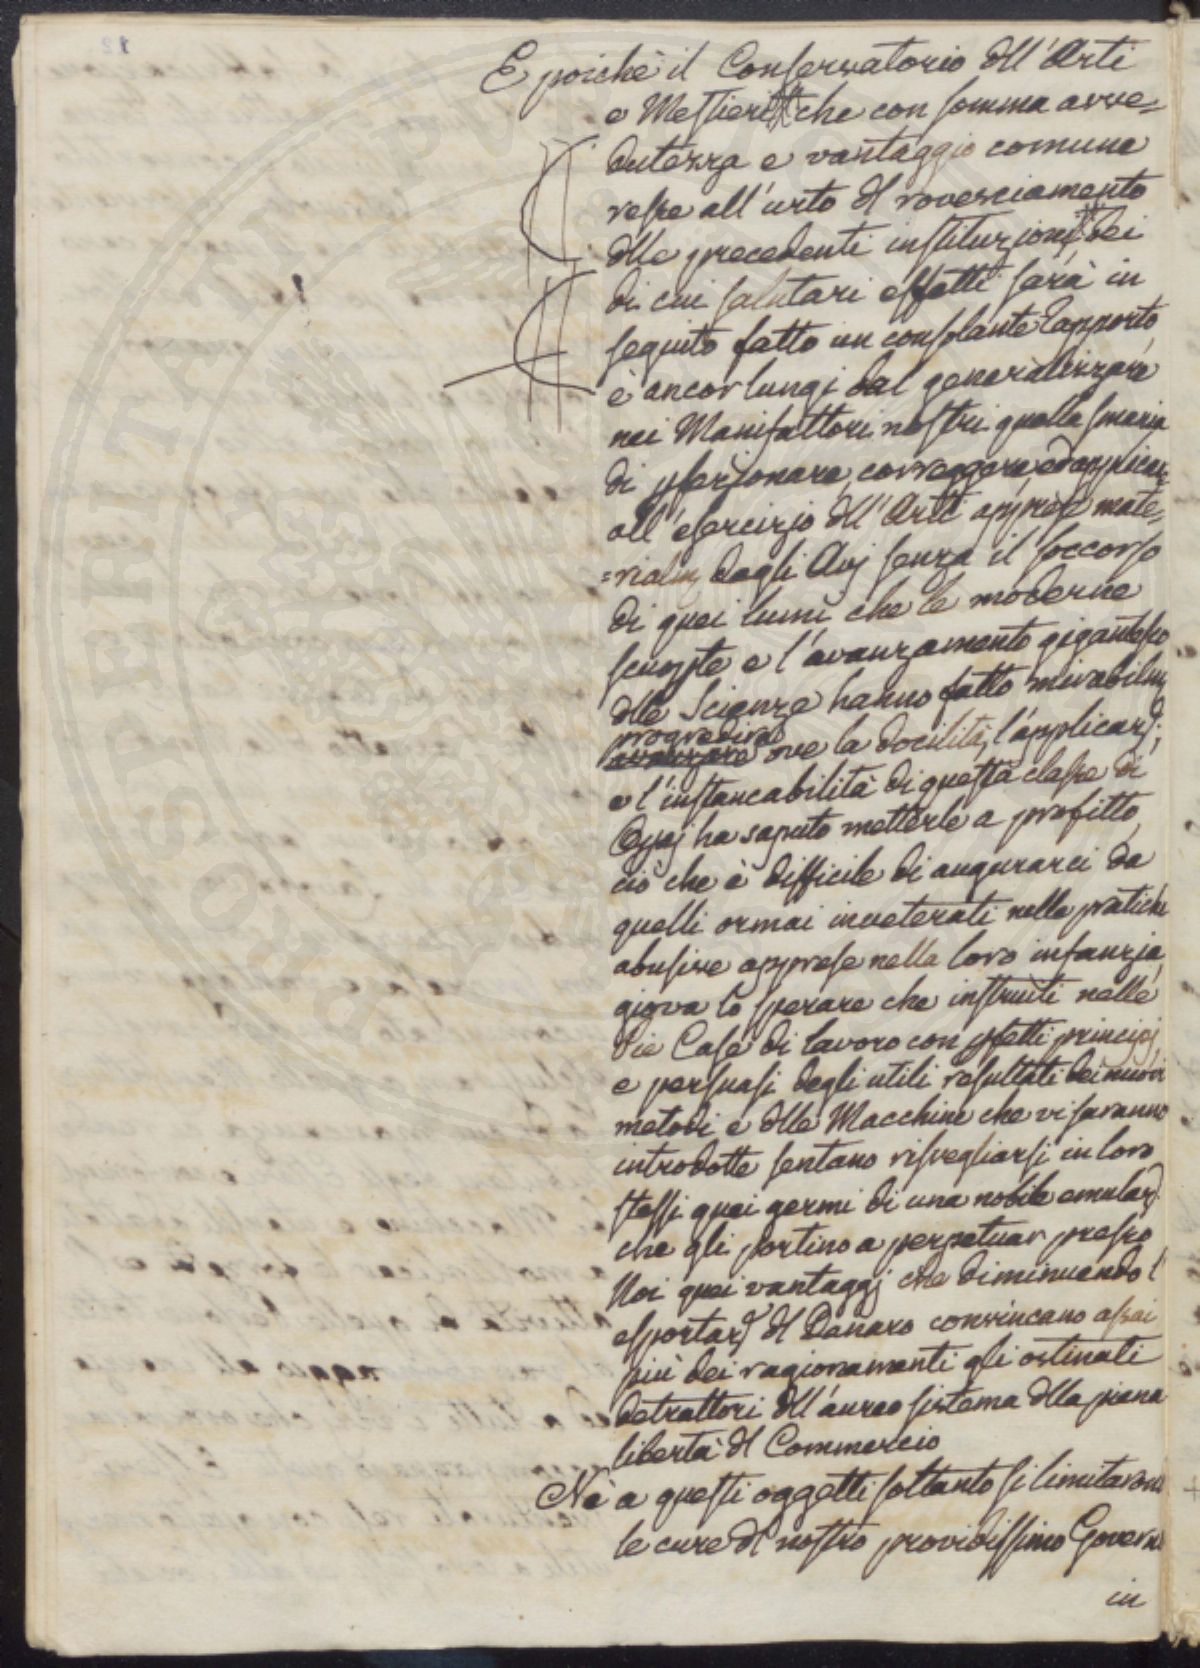 E poichè il Conservatorio dll'Arti
e Mestieri che con somma avve=
dutezza e vantaggio comune
resse all'urto dl rovesciamento
dlle precedenti instituzioni dei
di cui salutari effetti sarà in
seguito fatto un consolante rapporto,
è ancor lungi dal generalizzare
nei Manifattori nostri quella smania
di pfezionare, correggere, ed applicar
all'esercizio dll'Arti apprese mate=
=rialm dagli Avj senza il soccorso
di quei lumi che le moderne
scuopte e l'avanzamento gigantesco
dlle Scienze hanno fatto mirabilm
progredire
avanzare ove la docilità, l'applicaz:
e l'instancabilità di questa classe di
Opaj ha saputo metterle a profitto,
ciò che è difficile di augurarci da
quelli ormai inveterati nelle pratiche
abusive apprese nella loro infanzia,
giova lo sperare che instruiti nelle
die Case di lavoro con pfetti principj
e persuasi degli utili resultati dei nuovi
metodi e dlle Macchine che vi saranno
introdotte sentano risvegliarsi in loro
stessi quei germi di una nobile emulaz:
che gli portino a perpetuar presso
Noi quei vantaggj che diminuendo l'
esportaz dl Danaro convincano assai
più dei ragionamenti gli ostinati
detrattori dll'aureo sistema dlla piena
libertà dl Commercio
Nè a questi oggetti soltanto si limitarono
le cure dl nostro providissimo Governo
in
PROSPERITATI PVB